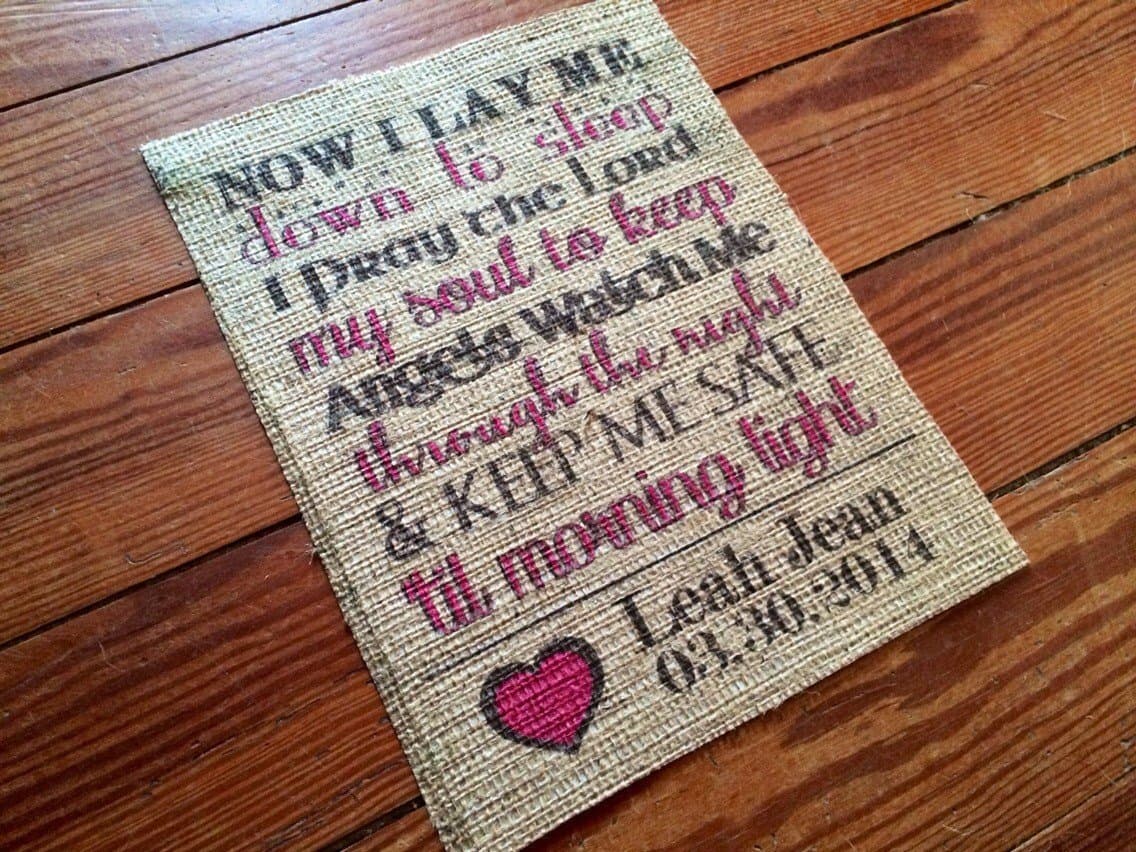 NOW I LAY ME
down to sleep
I Pray the Lord
my soul to keep
Angels Watch Me
through the night
& KEEP ME SAFE
'til morning light
Leah Jean
03.30.2014